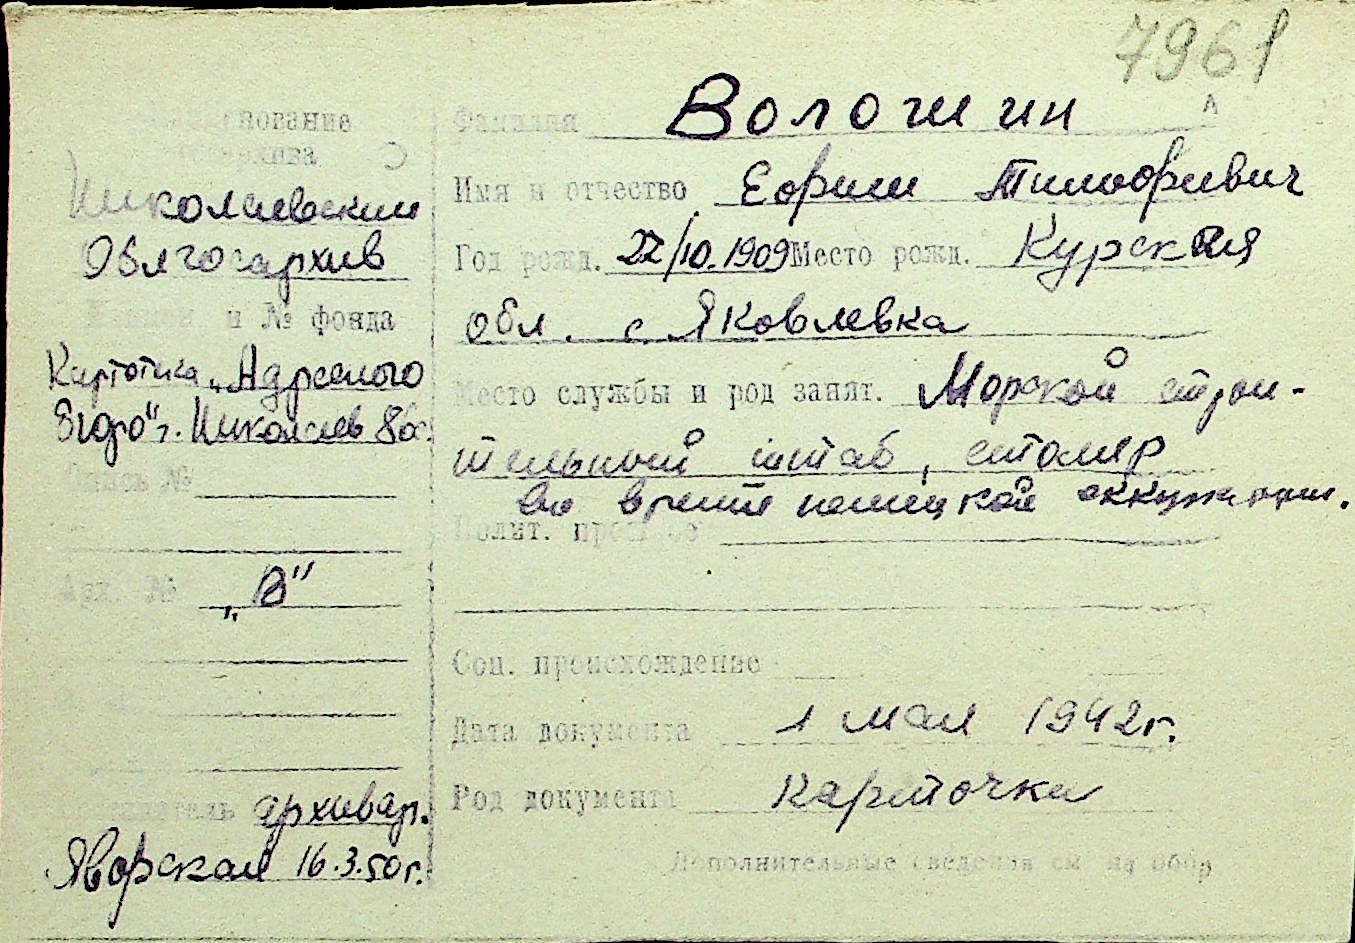 7961
Наименование
архива
Николаевский
Облгосархив
и № фонда
Картотека „Адресного
Бюро" г. Николаев
Опись №
Арх. № „В"
Составитель архивар.
Яворская 16.3.50г.
Фамилия Волошин
Имя и отчество Ефим Тимофеевич
Год рожд. 22/10.1909 Место рожд. Курская
обл. с. Яковлевка
Место службы и род занят. Морской строи-
тельный штаб, столяр
во время немецкой оккупации.
Полит.
Соц. происхождение
Дата документа 1 мая 1942г.
Род документа карточка
Дополнительные сведения см на обор